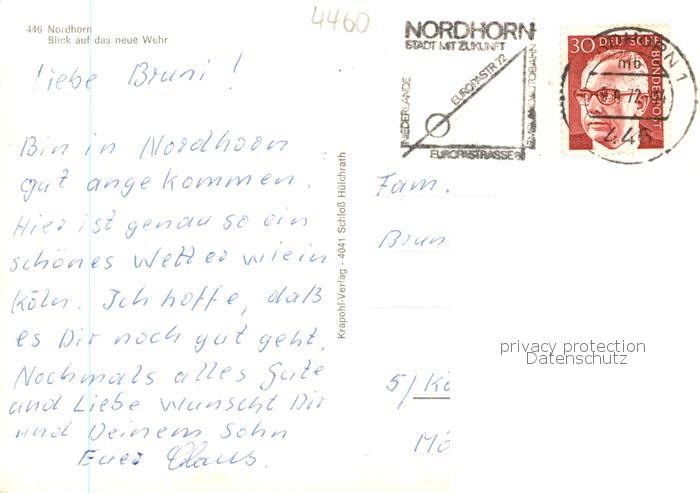 4460
446 Nordhorn
Blick auf das neue Wehr
NORDHORN
STADT MIT ZUKUNFT
NIEDERLANDE
EUROPASTR 72
EMSLANDAUTOBAHN
EUROPASTRASSE 8
30 DEUTSCHE BUNDESPOST
1
mb
72
446
Liebe Bruni!
Bin in Nordhorn
gut angekommen.
Hier ist genau so ein
schönes Wetter wie in
Köln. Ich hoffe, daß
es Dir noch gut geht.
Nochmals alles Gute
und Liebe wünscht Dir
und Deinem Sohn
Euer Claus.
Krapohl-Verlag - 4041 Schloß Hülchrath
Fam.
Brun
5/ Kö
Mö
privacy protection
Datenschutz